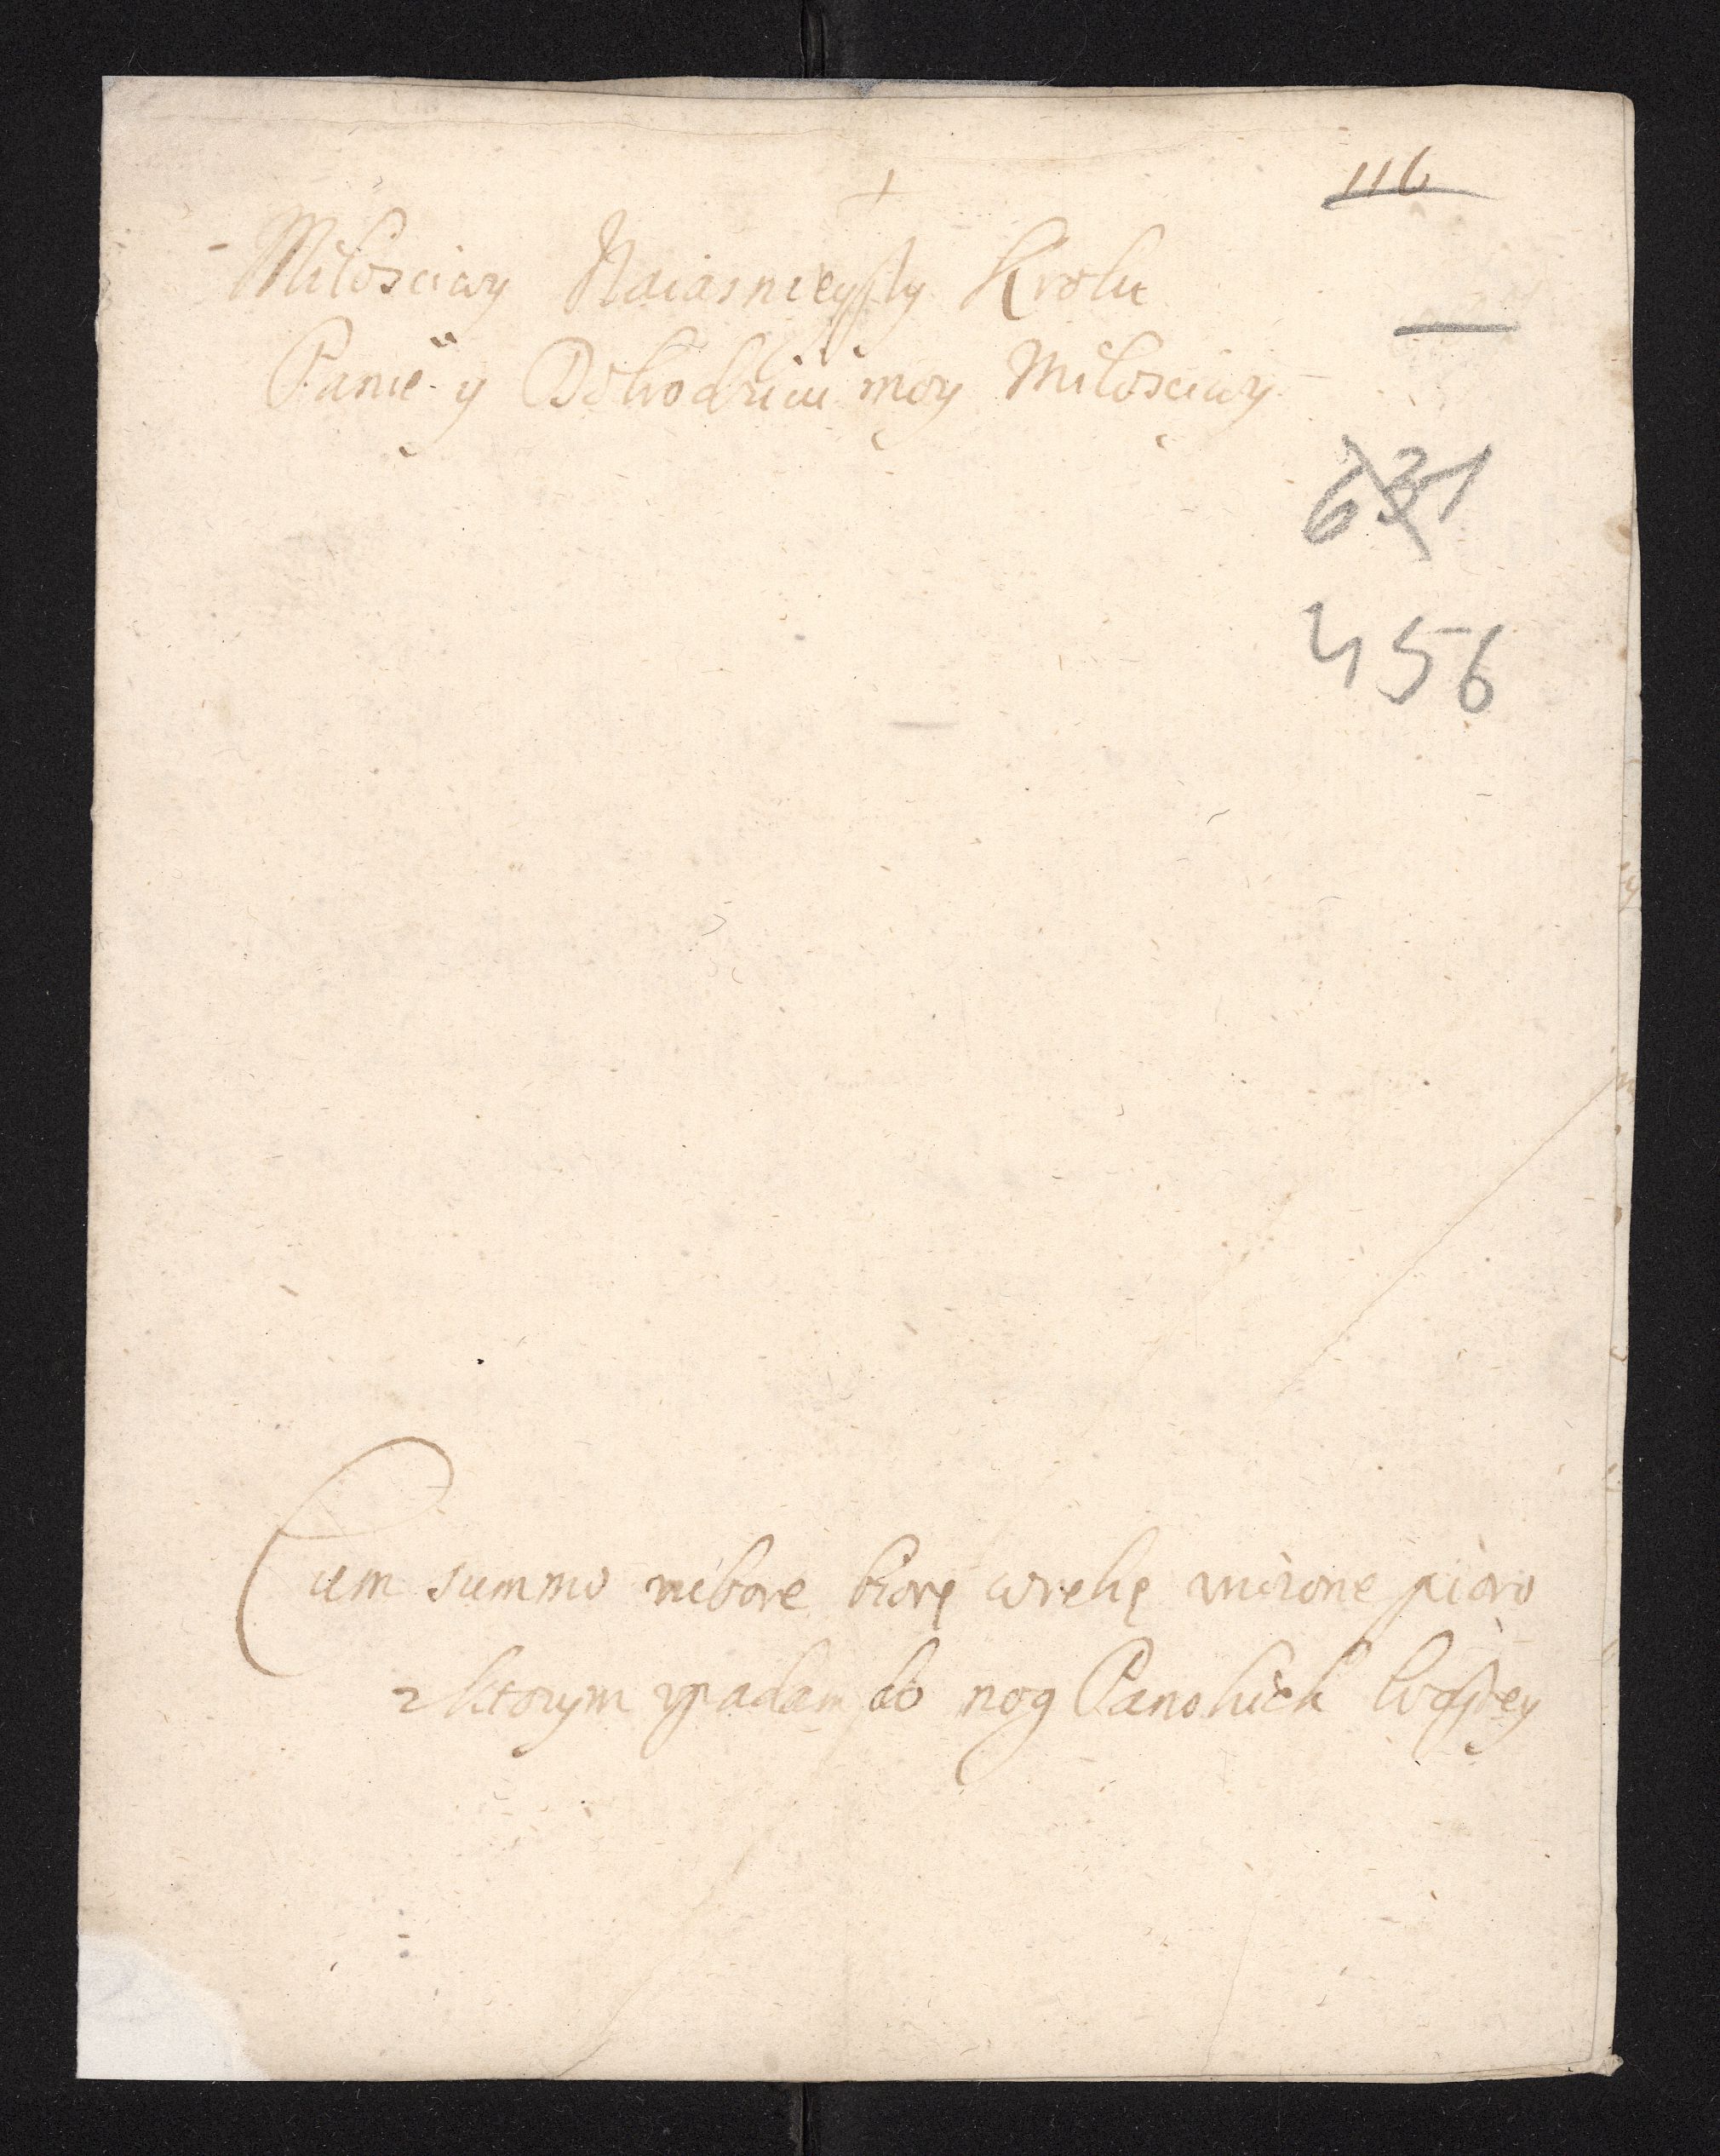 116
+
Miłosciwy Naiasnieyszy Krolu
Panie y Dobrodzieiu moy Miłosciwy
631
456
Cum summo rubore biorę wrękę unizone pioro
zktorym vpadam do nog Panskich Waszey